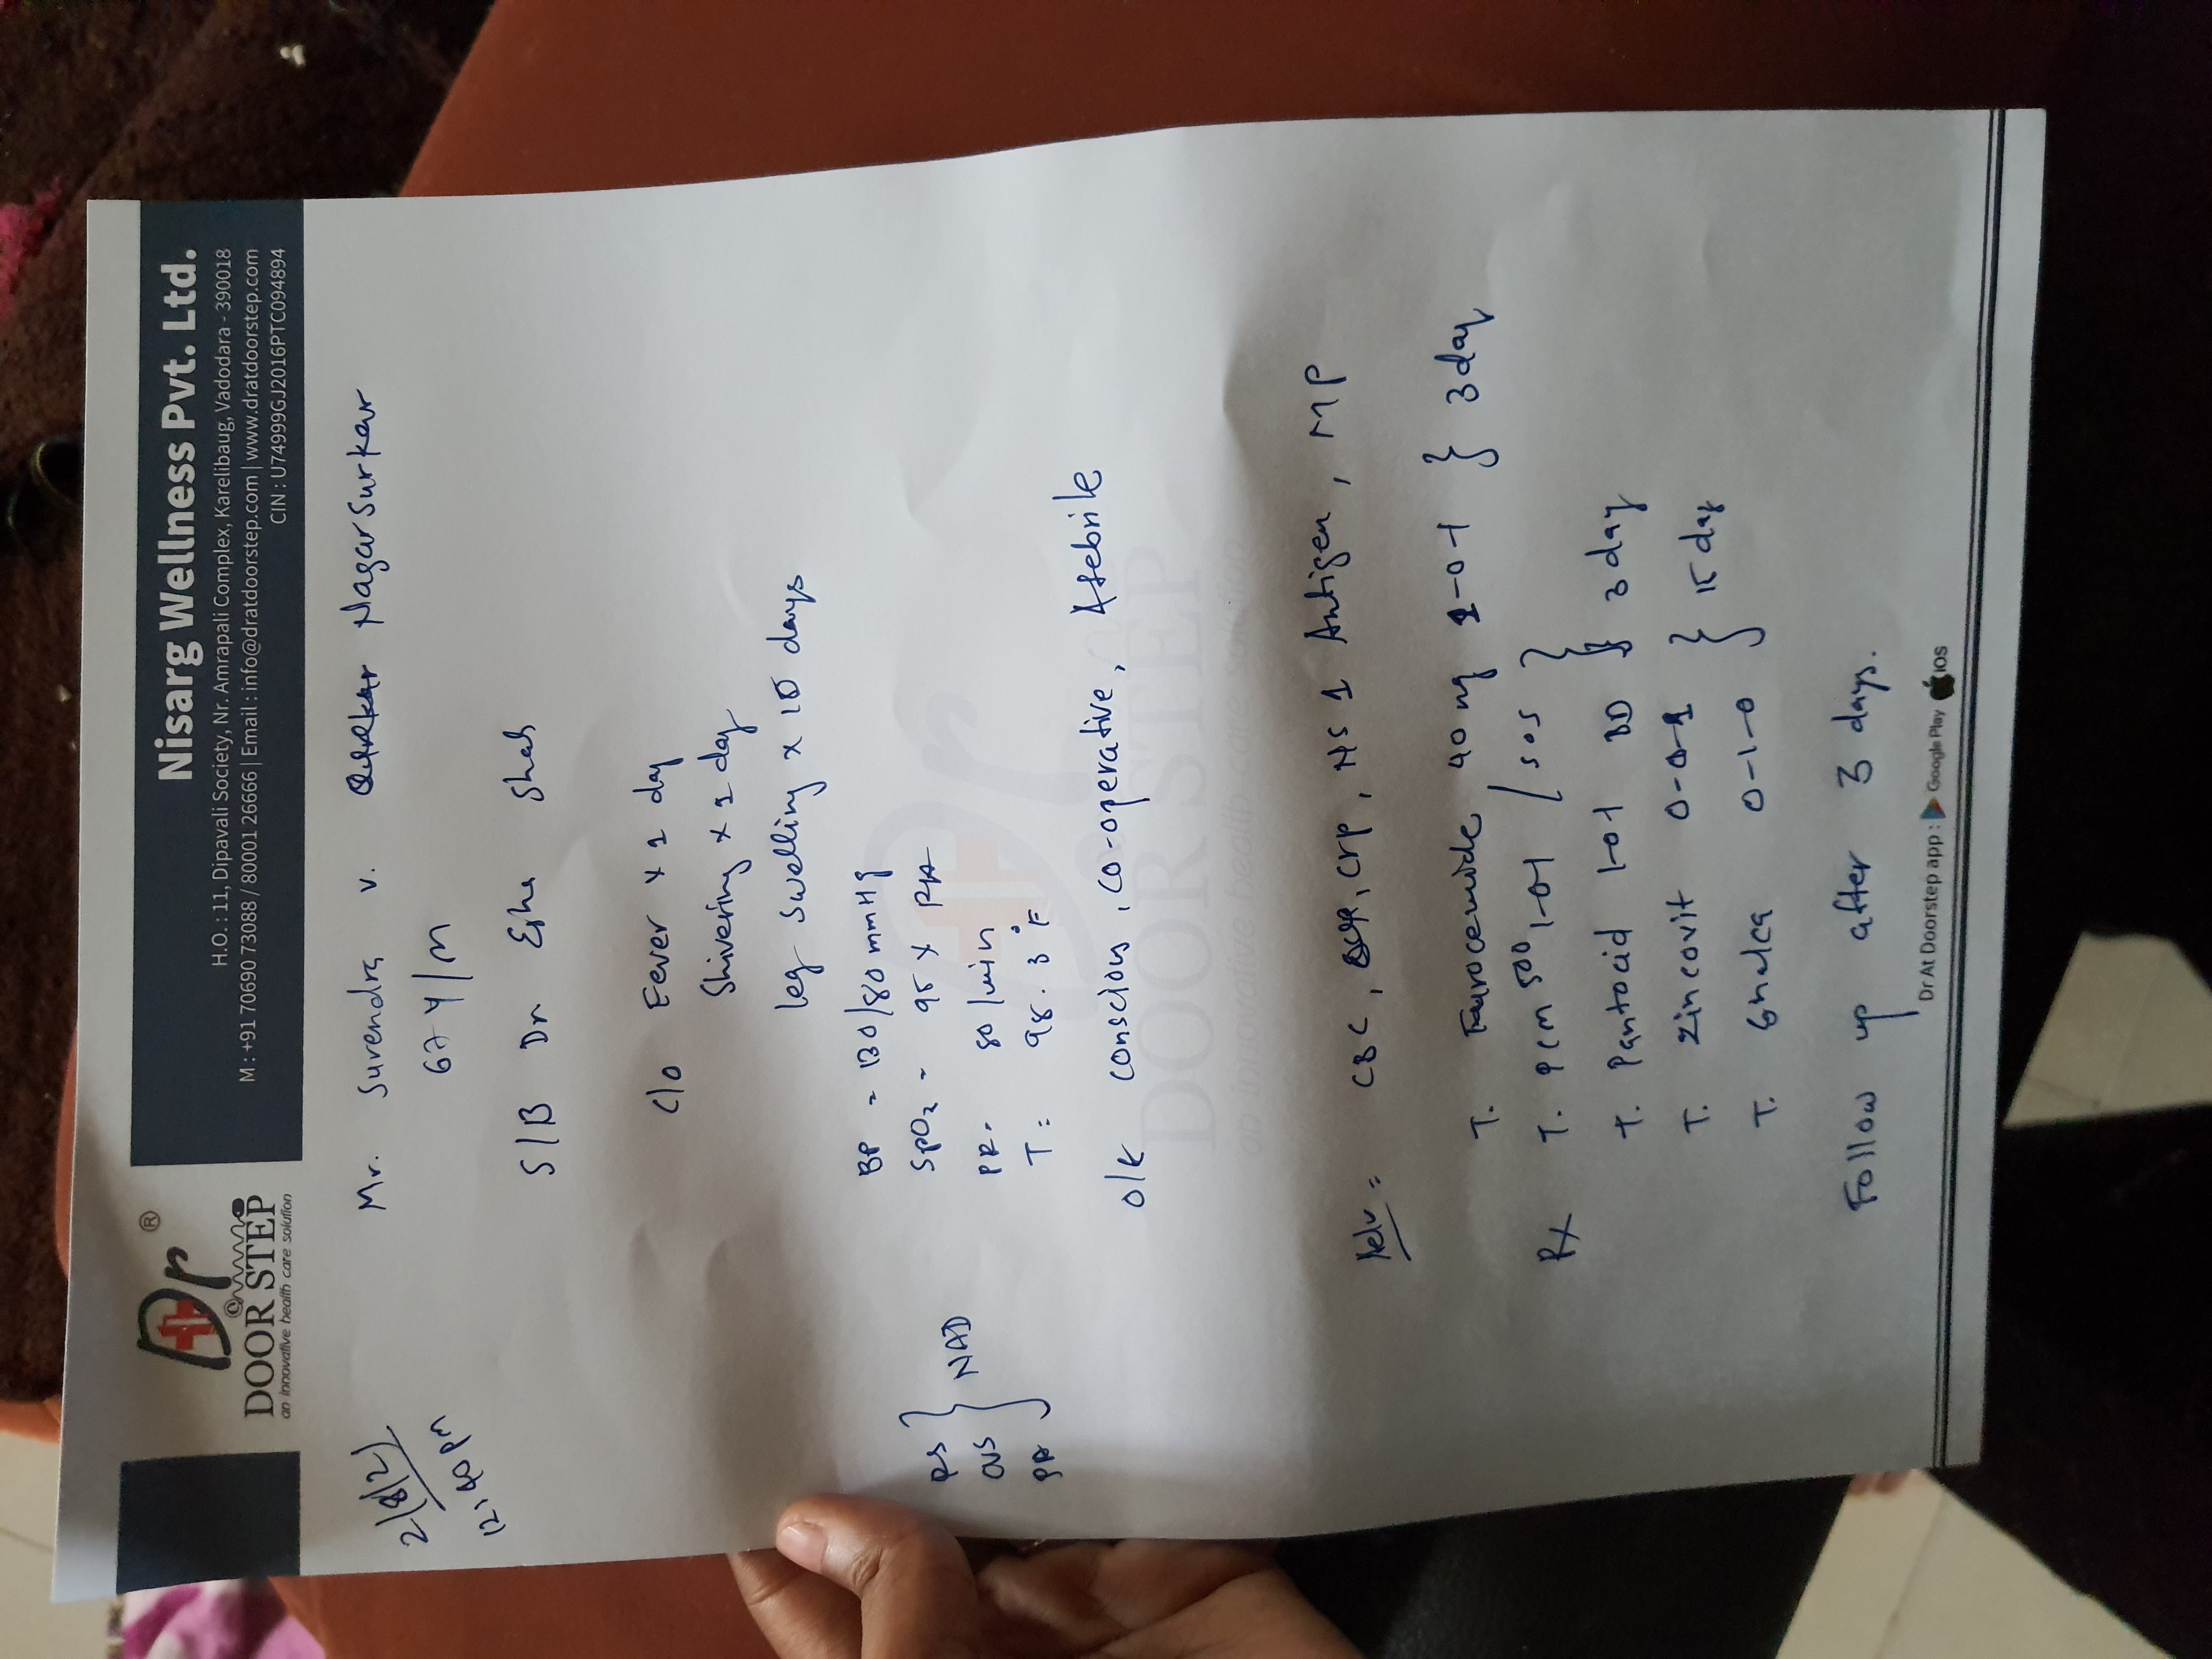 Dr ®
@
DOOR STEP
an innovative health care solution
Nisarg Wellness Pvt. Ltd.
H.O. : 11, Dipavali Society, Nr. Amrapali Complex, Karelibaug, Vadodara - 390018
M : +91 70690 73088 / 80001 26666 | Email : info@dratdoorstep.com | www.dratdoorstep.com
CIN : U74999GJ2016PTC094894
2/8/21
12:40 pm
Mr. Surendra v. Nagarsurkar
67 Y/M
S/B Dr Esha Shah
C/o Fever x 1 day
Shivering x 1 day
leg swelling x 10 days
BP = 130/80 mmHg
SpO2 - 95 % RA
PR - 80 /min
T: 98.3 °F
RS
CVS
PA
} NAD
o/E conscious, co-operative, Afebrile
DOOR STEP
an innovative health care solution
Adv = CBC, CRP, NS 1 Antigen, MP
T. 40 mg 1-0-1 } 3 day
Rx T. PCM 500 1-0-1 / SOS
T. Pantocid 1-0-1 BD } 3 day
T. Zincovit 0-0-1
T. 0-1-0 } 15 day
Follow up after 3 days.
Dr At Doorstep app : Google Play iOS